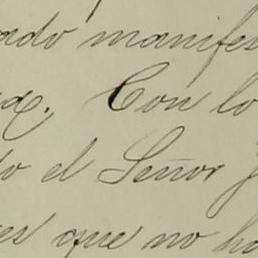 ado manifes
ra. Con lo
to el Señor J
es que no ha